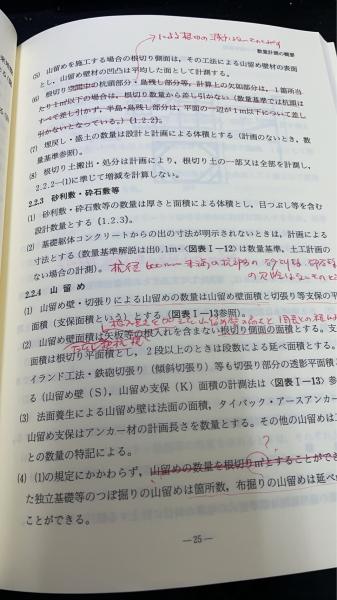 数量計測の概要
(5) 山留めを施工する場合の根切り側面は、その工法による山留め壁材の表面
とし、山留め壁材の凹凸は平均した面として計測する。
(6) 根切り空間中の杭頭部分・島残し部分等、計算上の欠如部分は、1箇所当
たり1m³以下の場合は、根切り数量から差し引かない(数量基準では杭頭は
すべて差し引かず、半島・島残し部分は、平面の一辺が1m以下について差し
引かないとなっている。)(1.2.2)。
(7) 埋戻し・盛土の数量は設計と計画による体積とする(計画のないとき、数
量基準参照)。
(8) 根切り土搬出・処分は計画により、根切り土の一部又は全部を計測し、
2.2.2-(1)に準じて増減を計算しない。
2.2.3 砂利敷・砕石敷等
(1) 砂利敷・砕石敷等の数量は厚さと面積による体積とし、目つぶし等を含む
設計数量とする(1.2.3)。
(2) 基礎躯体コンクリートからの出の寸法が明示されないときは、計画による
寸法とする(数量基準解説は出0.1m・〈図表Ⅰ−12〉は数量基準、土工計画の
ない場合の計測)。
2.2.4 山留め
(1) 山留め壁・切張りによる山留めの数量は山留め壁面積と切張り等支保の平
面積(支保面積という)とする〈図表Ⅰ−13参照〉。
(2) 山留め壁面積は矢板等の根入れを含まない根切り側面の面積とする。支
面積は根切り平面積とし、2段以上のときは段数による延べ面積とする。
イランド工法・鉄砲切張り(傾斜切張り)等も切張り部分の透影平面積と
る(山留め壁(S)、山留め支保(K)面積の計測法は〈図表Ⅰ−13〉参
(3) 法面養生による山留め壁は法面の面積、タイバック・アースアンカー
山留め支保はアンカー材の計画長さを数量とする。その他の山留めは工
との数量の特記による。
?
(4) (1)の規定にかかわらず、山留めの数量を根切りm³とすることができ
た独立基礎等のつぼ掘りの山留めは箇所数、布掘りの山留めは延べ
ことができる。
—25—